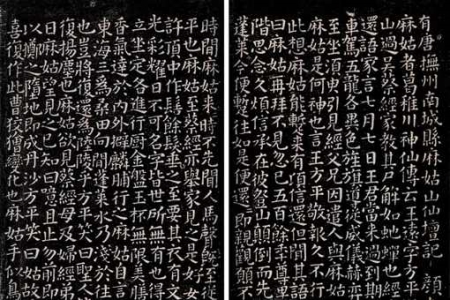 有唐撫州南城縣麻姑山仙壇記 顏
麻姑者葛稚川神仙傳云王遠字方平
山過吳蔡經家教其尸解如蛇蟬也經
還語家言七月七日王君當来過到期
車駕五龍各異色旌旗導從威儀赫弈
坐須臾引見經父兄因遣人與麻姑
麻姑是何神也言王方平敬報久不行
此想麻姑能暫來有頃信還但聞其語
曰麻姑再拜不見忽已五百餘年尊卑
階思念久煩信承在彼登山顛倒而先
蓬萊今便暫往如是便還即親觀願不
時間麻姑来時不先聞人馬聲旣至從
平也麻姑至蔡經亦舉家見之是好女
許頂中作髻餘髮垂之至要其衣有文
光彩耀日不可名字皆世所無有也得
立坐定各進行廚金盤玉杯無限美膳
香氣達於內外擗麟脯行之麻姑自言
東海三為桑田向間蓬萊水乃淺於往
也豈將復還為陸陵乎方平笑曰聖人
復揚塵也麻姑欲見蔡經母及婦經弟
日麻姑望見之已知曰噫且止勿前即
以擲之墮地即成丹沙方平笑曰姑故
喜復作此曹狡獪變化也麻姑手似鳥